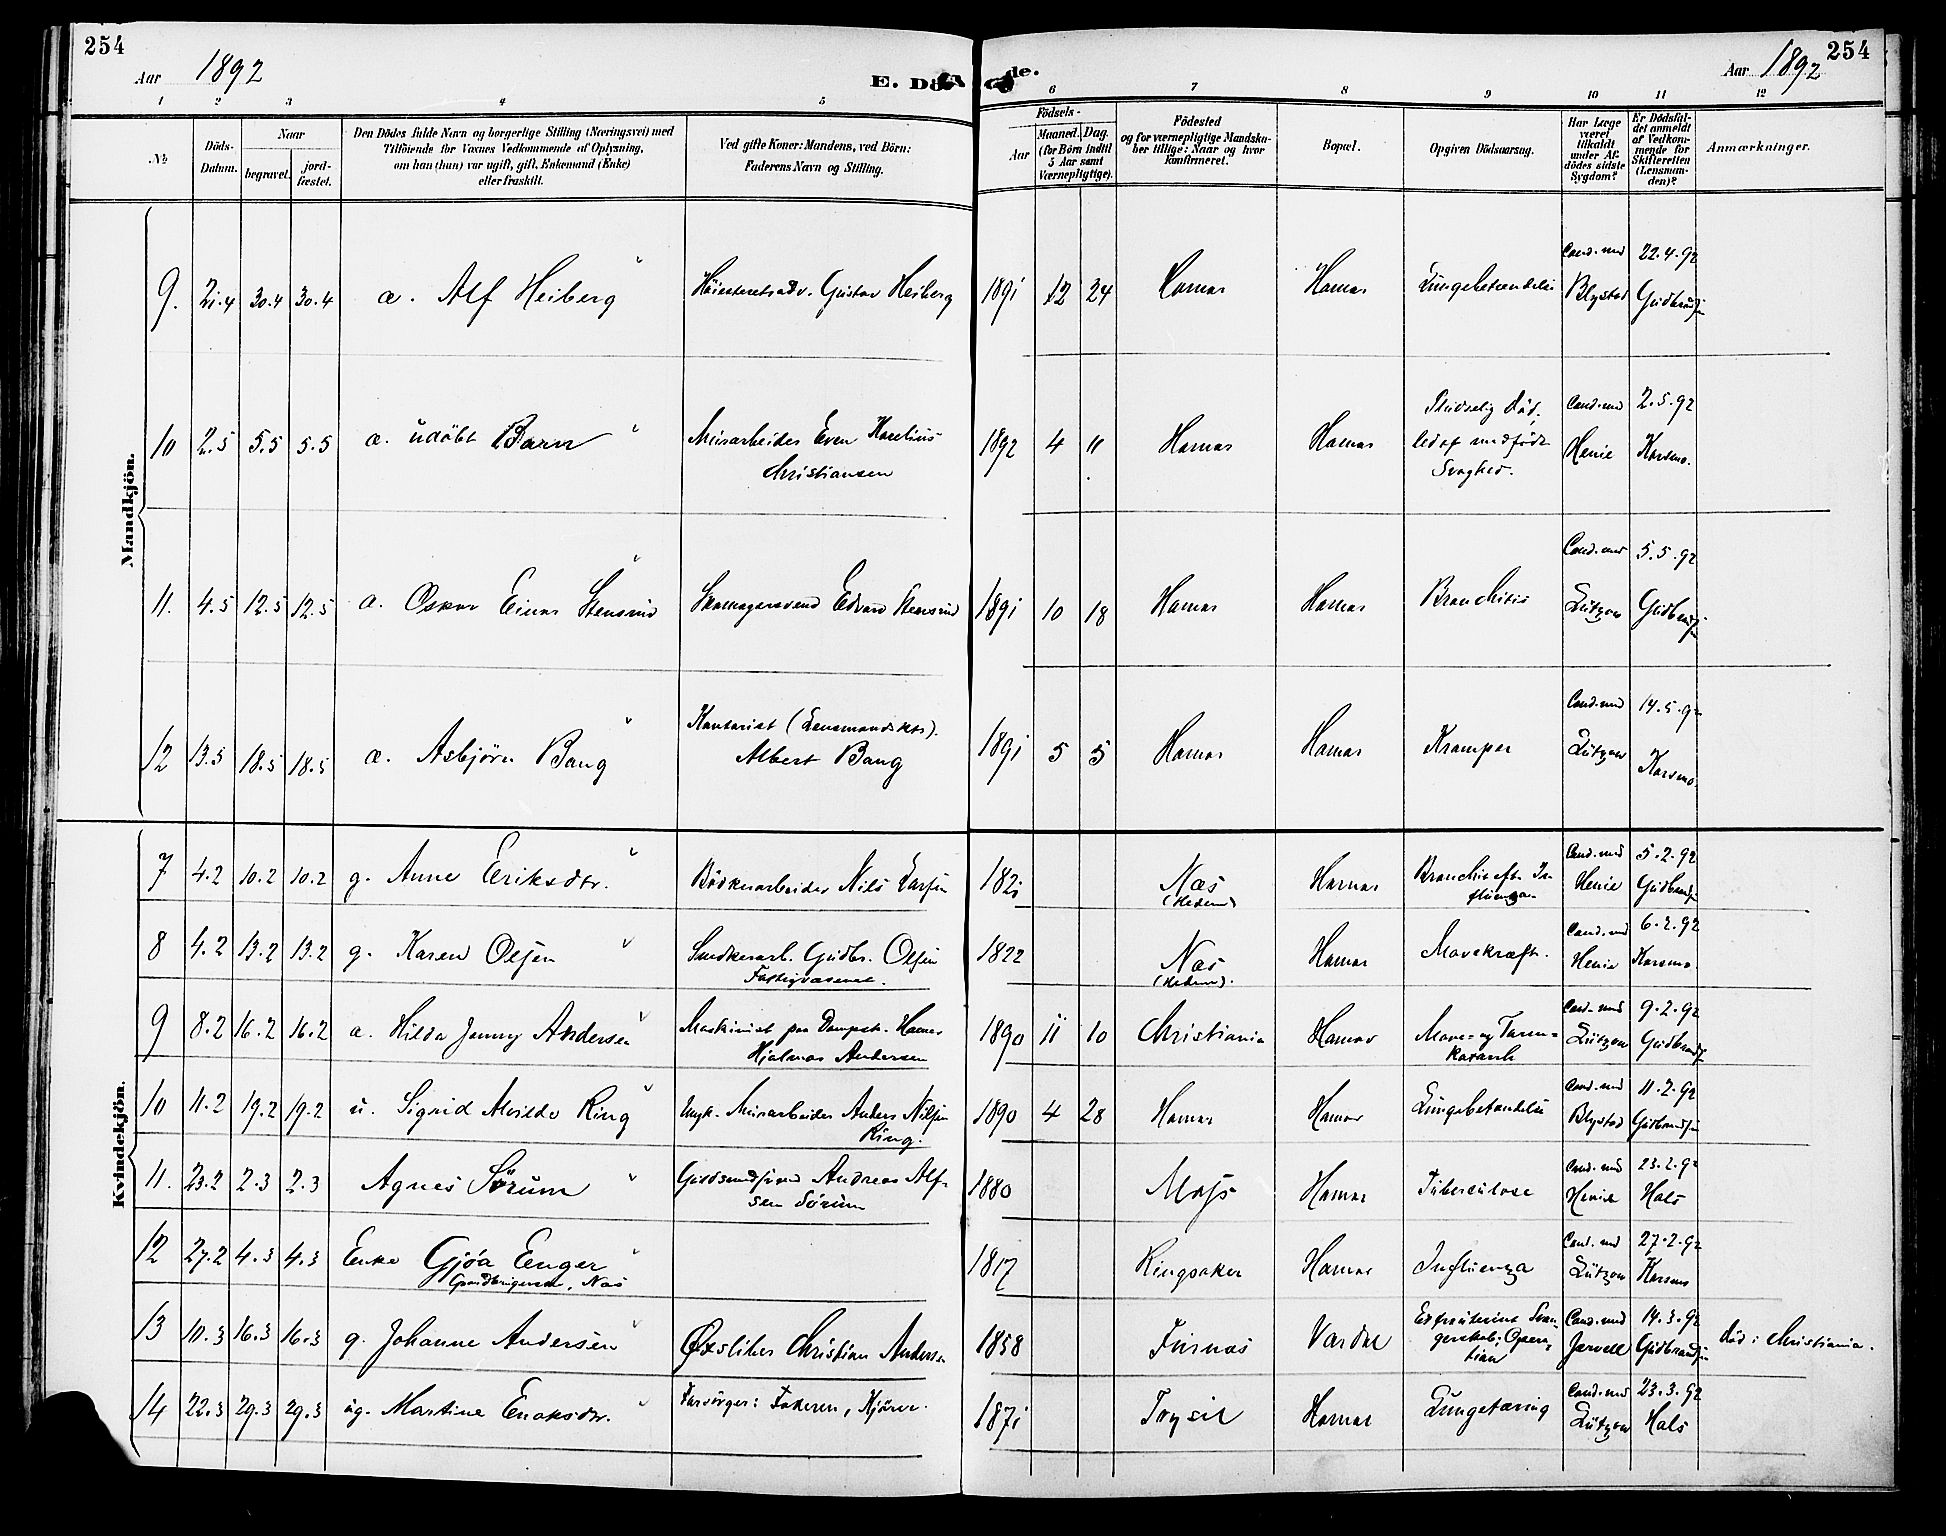 254
Aar 1892
E. Dö de.
Aar 1892
254
1 2 3 4 5 6 7 8 9 10 11 12
№
Döds-
Datum.
Naar
begravet.
jord-
fæstet.
Den Dödes fulde Navn og borgerlige Stilling (Næringsvei) med
Tilföiende for Voxnes Vedkommende af Oplysning,
om han (hun) var ugift, gift, Enkemand (Enke)
eller fraskilt.
Ved gifte Koner: Mandens, ved Börn:
Faderens Navn og Stilling.
Födsels-
Aar
Maaned. Dag.
(for Börn indtil
5 Aar samt
Værnepligtige).
Födested
og for værnepligtige Mandska-
ber tillige: Naar og hvor
konfirmeret.
Bopæl.
Opgiven Dödsaarsag.
Har Læge
været
tilkaldt
under Af-
dödes sidste
Sygdom?
Er Dödsfal-
det anmeldt
af Vedkom-
mende for
Skifteretten
(Lensman-
den)?
Anmærkninger.
Mandkjön.
9. 21.4 30.4 30.4 a. Alf Heiberg Höiesteretsadv. Gustav Heiberg 1891 12 24 Hamar Hamar Lungebetændelse Cand. med Blystad 22.4.92 Gudbrandsen
10 2.5 5.5 5.5 a. udöbt Barn Murarbeider Even Karelius
Christiansen 1892 4 " Hamar Hamar Pludselig död,
led af medfödt
Svaghed. Cand. med Henie 2.5.92 Karsmo.
11. 4.5 12.5 12.5 a. Oskar Einar Stensrud Skomagersvend Edvard Stensrud 1891 10 18 Hamar Hamar Bronchitis Cand. med Lützow 5.5.92 Gudbrandsen
12 13.5 18.5 18.5 a. Asbjörn Bang Kontorist (Lensmandsktr).
Albert Bang 1891 5 5 Hamar Hamar Kramper Cand. med Lützow 14.5.92 Karsmo.
Kvindekjön.
7 4.2 10.2 10.2 g. Anne Eriksdtr. Bödkerarbeider Nils Larsen 1821 Næs
(Hedem) Hamar Bronchit eft. In-
fluenza Cand. med Henie 5.2.92 Gudbrands
8 4.2 13.2 13.2 g. Karen Olsen Snedkerarb. Gudbr. Olsen
Fattigvæsenet. 1822 Næs
(Hedem). Hamar Mavekræft. Cand. med Henie 6.2.92 Karsmo.
9 8.2 16.2 16.2 a. Hilda Jenny Andersen Maskinist paa Dampsk. Hamar
Hjalmar Andersen 1890 11 10 Christiania Hamar Mave- og Tarm-
katarrh Cand. med Lützow 9.2.92 Gudbrands
10 11.2 19.2 19.2 u. Sigrid Alvilde Ring Ungk. Murarbeider Anders Nilsen
Ring. 1890 4 28 Hamar Hamar Lungebetændelse Cand. med Blystad 11.2.92 Gudbrandsen
11. 23.2 2.3 2.3 Agnes Sörum Guldsmedsvend Andreas Alf-
sen Sörum 1880 Moss Hamar Tuberculose Cand. med Henie 23.2.92 Hals
12 27.2 4.3 4.3 Enke Gjöa Eenger
Gaardbrugerenke, Næs 1817 Ringsaker Hamar Influenza Cand. med Lützow 27.2.92 Karsmo
13 10.3 16.3 16.3 g. Johanne Andersen Øxsliber Christian Andersen 1858 Furnæs Vardal Extrauterint Svan-
gerskab; Opera-
tion Cand. med Jervell 14.3.92 Gudbrandsen död i Christiania.
14 22.3 29.3 29.3 ug. Martine Enoksdtr. Forsörger: Faderen, Kjörer. 1871 Trysil Hamar Lungetæring Cand. med Lützow 23.3.92 Hals